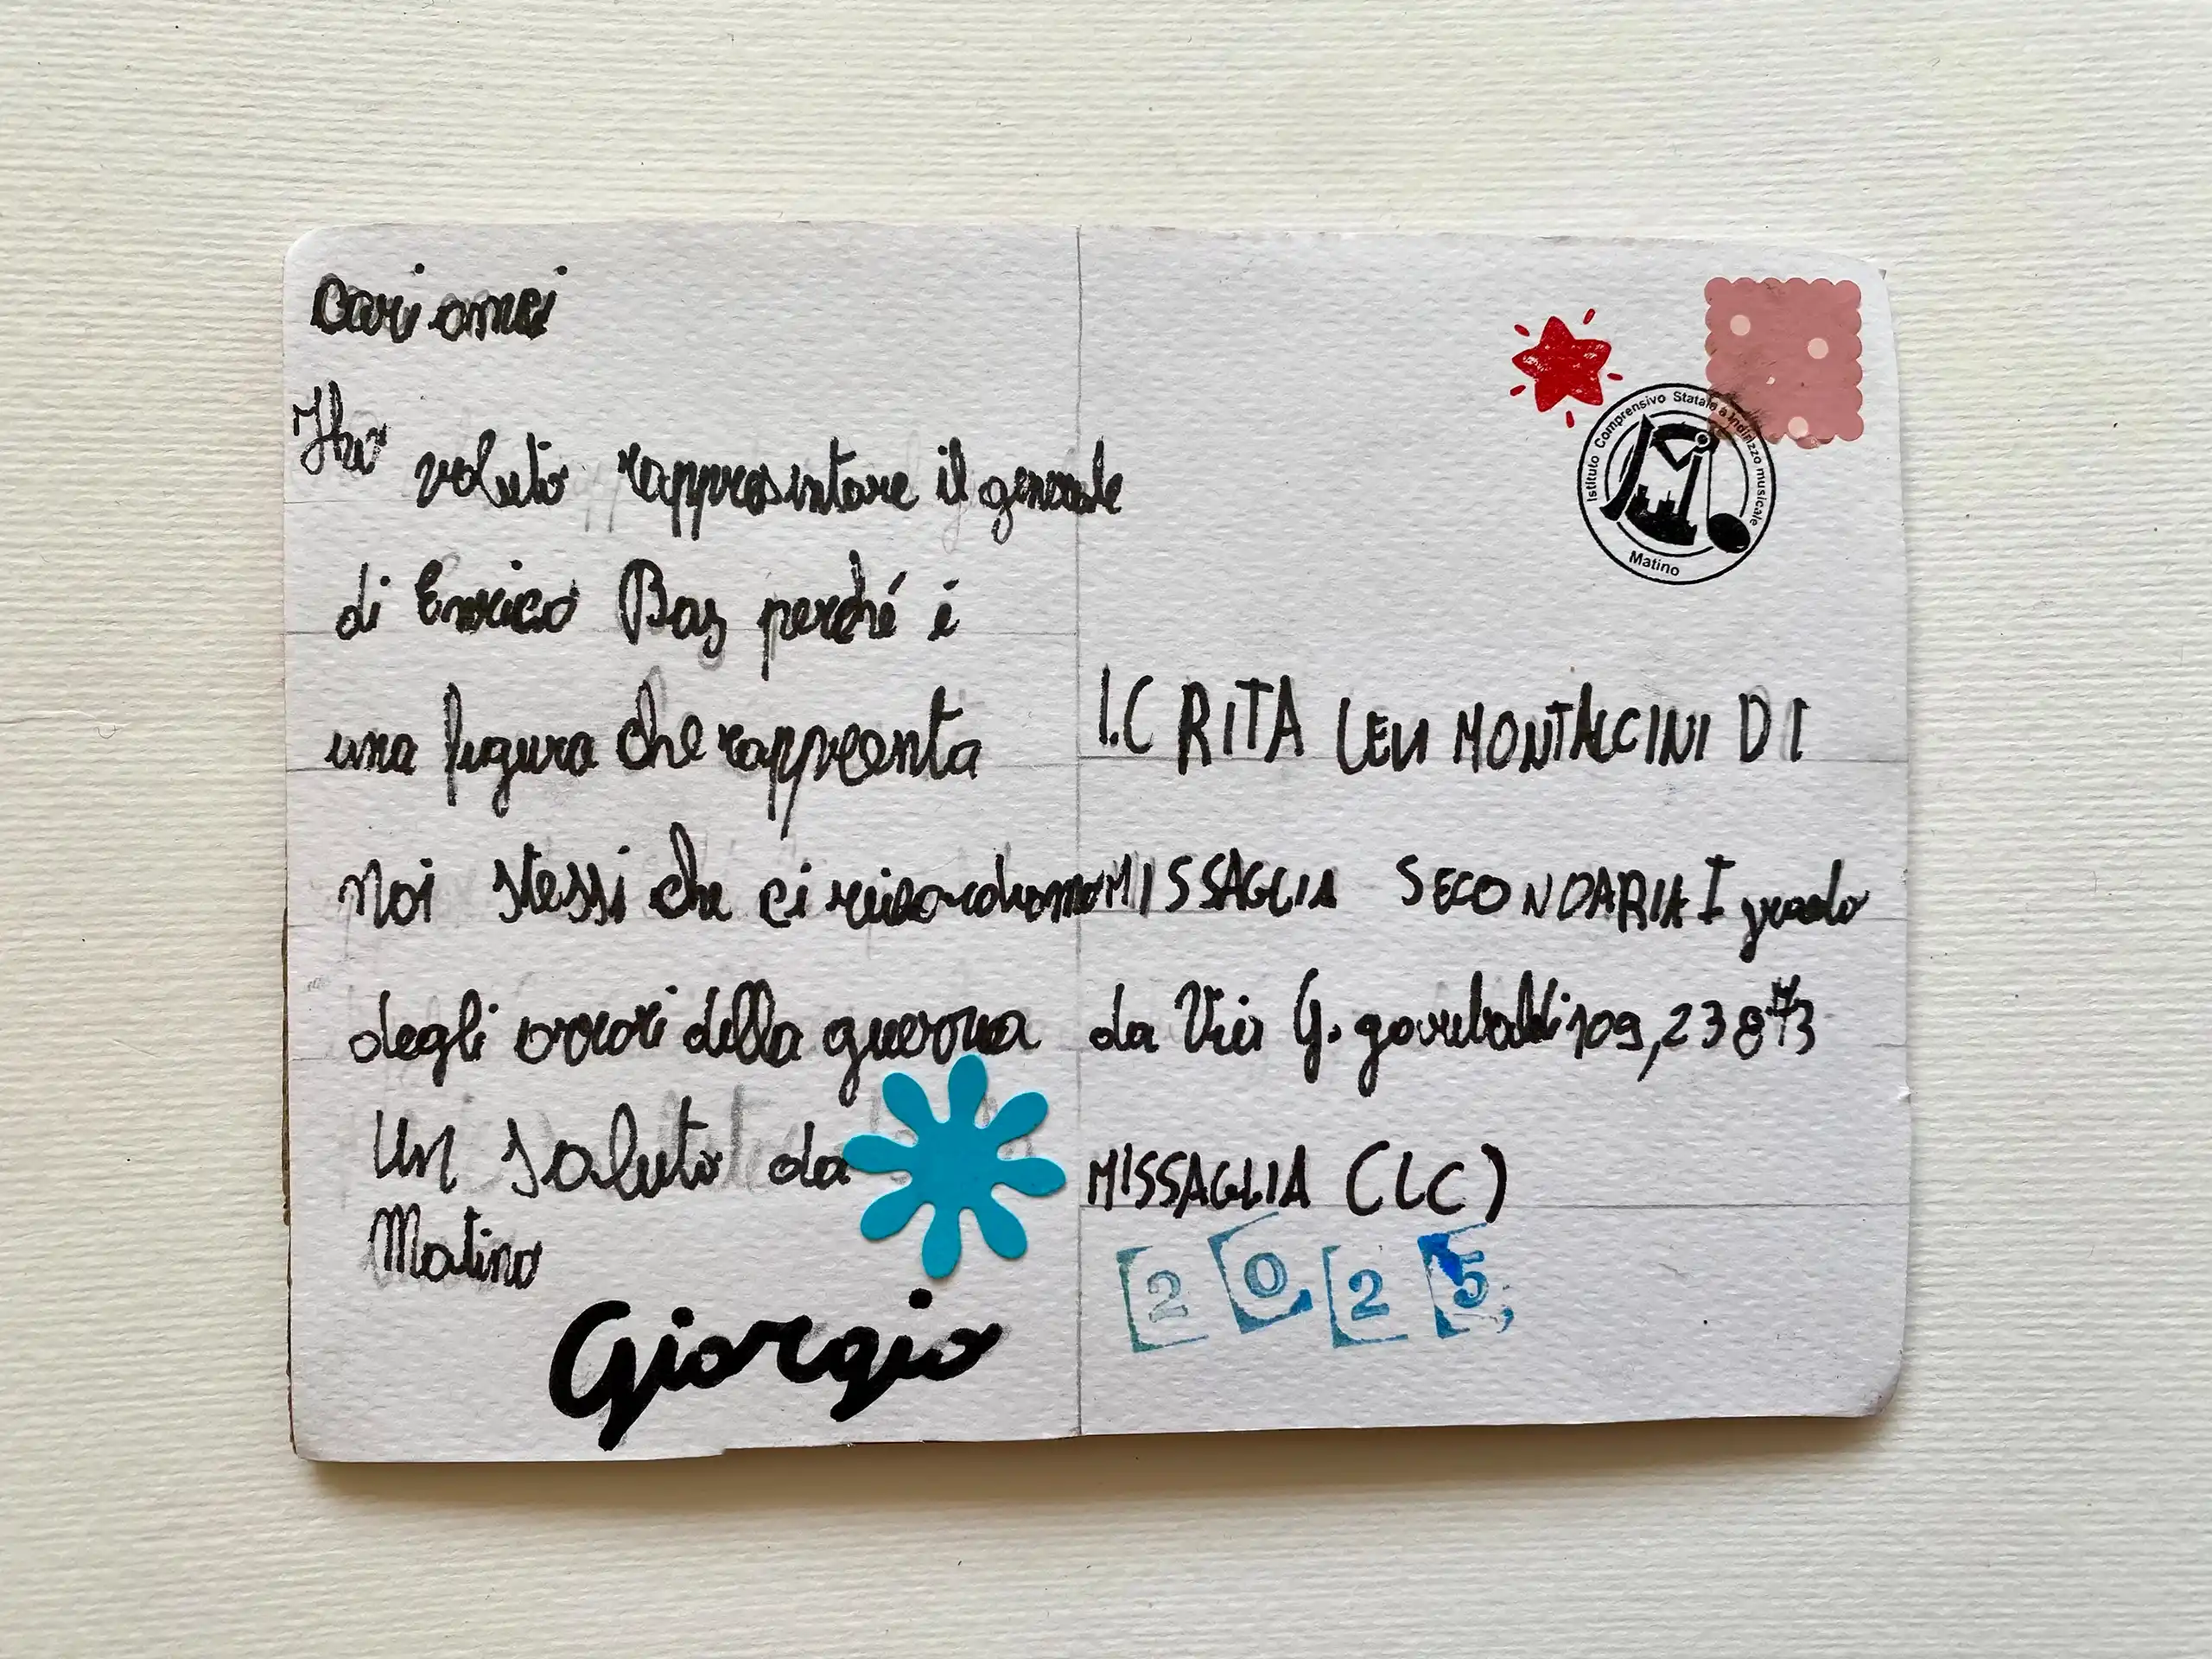 cari amici
Ho
voluto rappresentare il generale
di Enrico Baj perché è
una figura che rappreenta
noi stessi che ci ricordiamo
degli orrori della guerra
Un saluto da
Matino
Giorgio
Istituto Comprensivo Statale a Indirizzo musicale
Matino
I.C RITA LEVI MONTALCINI DI
MISSAGLIA SECONDARIA I grado
da Via G. garibaldi 109, 23873
MISSAGLIA (LC)
2025